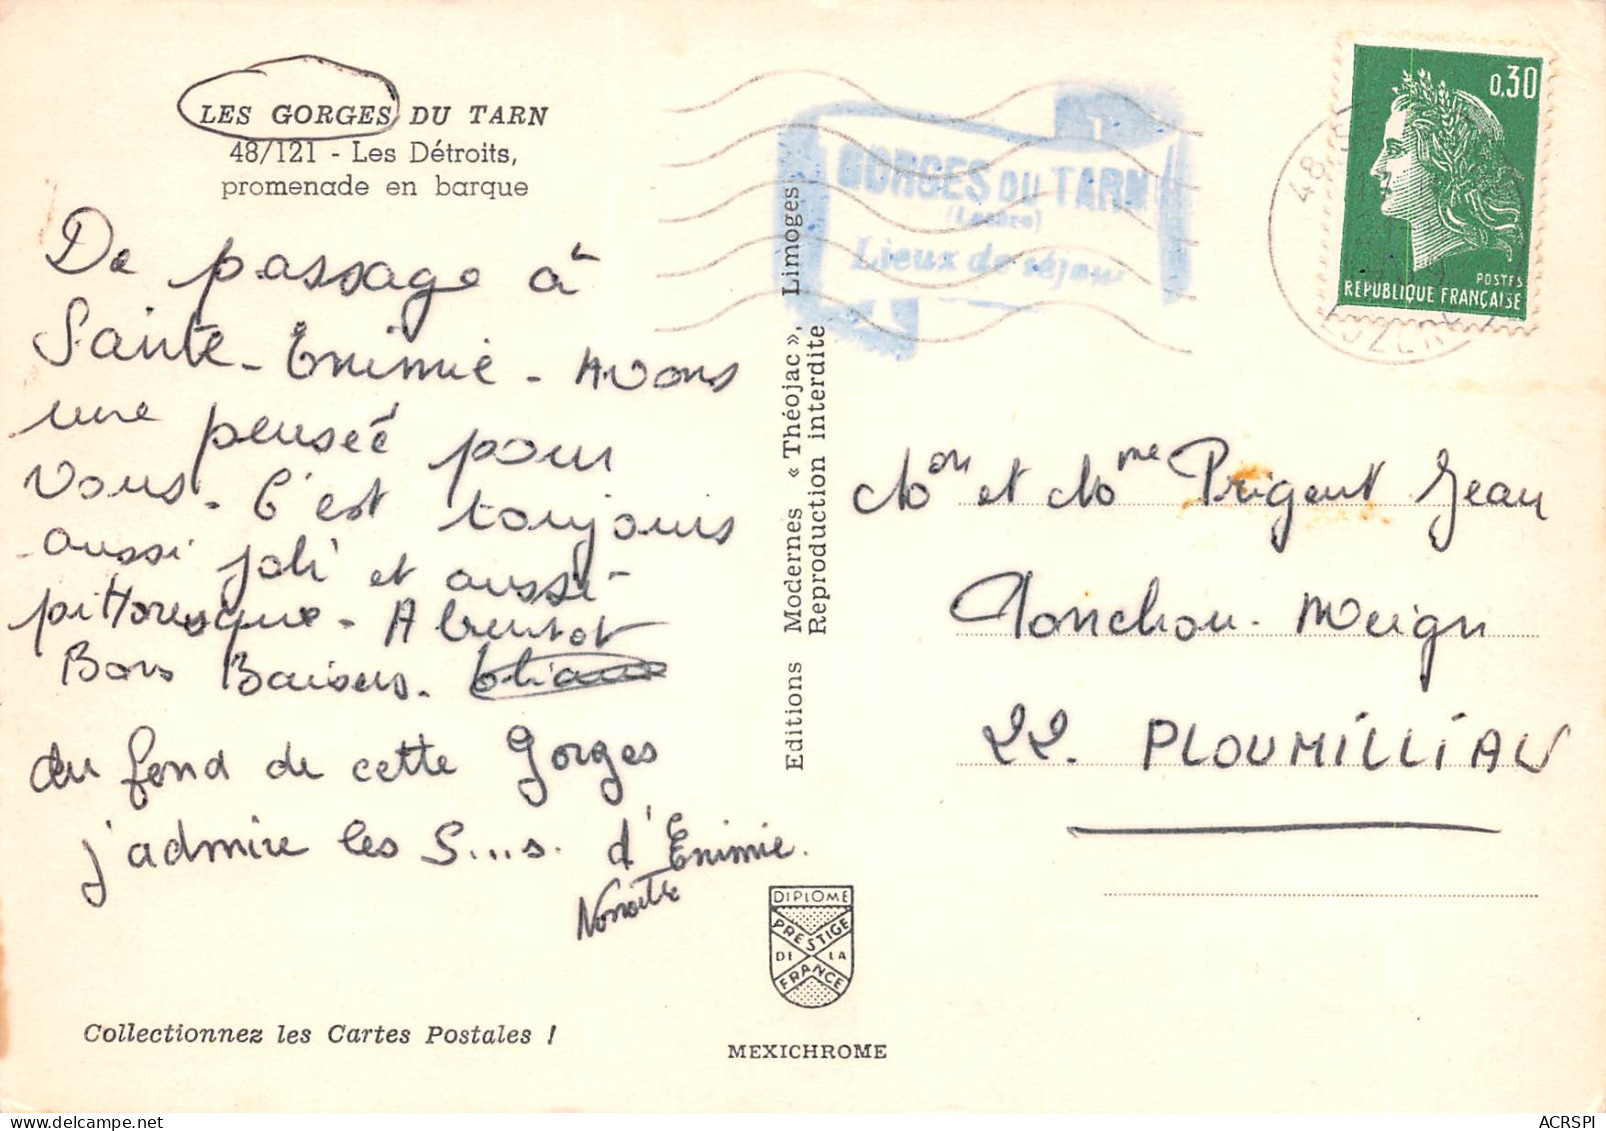 LES GORGES DU TARN
48/121 - Les Détroits,
promenade en barque
De passage à
Sainte-Enimie - Avons
une pensée pour
vous. C'est toujours
aussi joli et aussi
pittoresque - A bientot
Bons Baisers.
du fond de cette Gorges
j'admire les S...s. d'Enimie.
Collectionnez les Cartes Postales !
Editions Modernes « Théojac », Limoges
Reproduction interdite
DIPLOME
PRESTIGE
DE LA
FRANCE
MEXICHROME
GORGES DU TARN
(Lozère)
Lieux de séjour
0,30
POSTES
REPUBLIQUE FRANÇAISE
48
Mon et Mme Prigent Jean
22. PLOUMILLIAU
ACRSPI